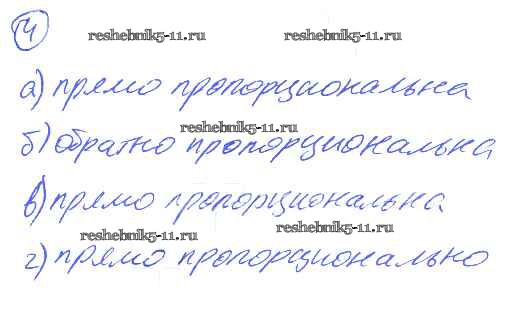 4
reshebnik5-11.ru reshebnik5-11.ru
а) прямо пропорциональна
reshebnik5-11.ru
б) обратно пропорциональна
в) прямо пропорциональна
reshebnik5-11.ru reshebnik5-11.ru
г) прямо пропорционально